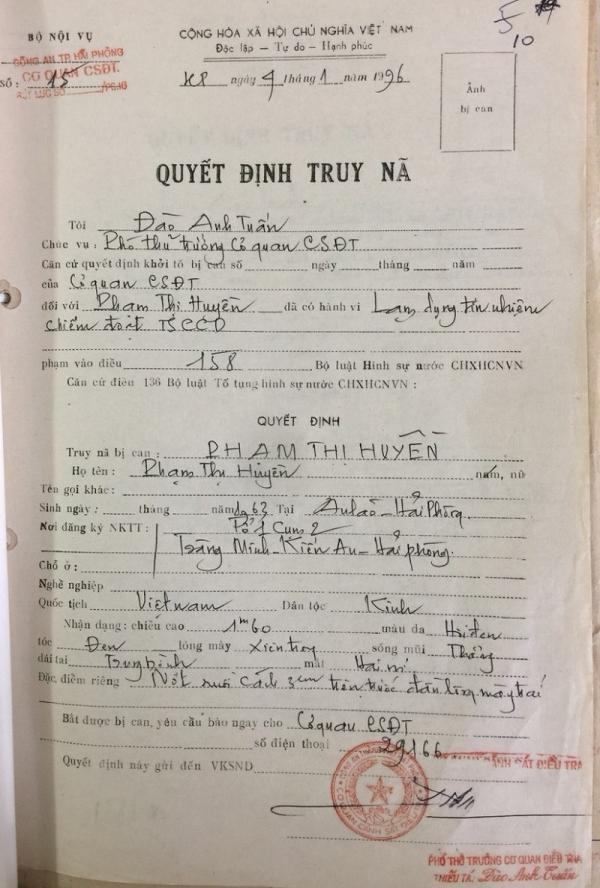 BỘ NỘI VỤ
CỘNG HÒA XÃ HỘI CHỦ NGHĨA VIỆT NAM
Độc lập — Tự do — Hạnh phúc
5
10
CÔNG AN TP. HẢI PHÒNG
CƠ QUAN CSĐT.
Số: 15
HP ngày 4 tháng 1 năm 1996
Ảnh
bị can
QUYẾT ĐỊNH TRUY NÃ
Tôi Đào Anh Tuấn
Chức vụ: Phó thủ trưởng Cơ quan CSĐT
Căn cứ quyết định khởi tố bị can số ngày tháng năm
của Cơ quan CSĐT
đối với Phạm Thị Huyền đã có hành vi Lạm dụng tín nhiệm
chiếm đoạt TSCCD
phạm vào điều 158 Bộ luật Hình sự nước CHXHCNVN
Căn cứ điều 136 Bộ luật Tố tụng hình sự nước CHXHCNVN:
QUYẾT ĐỊNH
Truy nã bị can: PHẠM THỊ HUYỀN
Họ tên: Phạm Thị Huyền nam, nữ
Tên gọi khác:
Sinh ngày: tháng năm 1963 Tại An Lão - Hải Phòng
Nơi đăng ký NKTT: Tổ 1 Cụm 2
Tràng Minh - Kiến An - Hải phòng.
Chỗ ở:
Nghề nghiệp
Quốc tịch Việt nam Dân tộc Kinh
Nhận dạng: chiều cao 1m60 màu da Hơi đen
tóc Đen lông mày sống mũi Thẳng
dái tai Trung bình mắt Hai mí
Đặc điểm riêng Nốt ruồi cách 3cm trên trước đầu lông mày trái
Bắt được bị can, yêu cầu báo ngay cho Cơ quan CSĐT
số điện thoại 29166
Quyết định này gửi đến VKSND
CẢNH SÁT ĐIỀU TRA
PHÓ THỦ TRƯỞNG CƠ QUAN ĐIỀU TRA
THIẾU TÁ: Đào Anh Tuấn